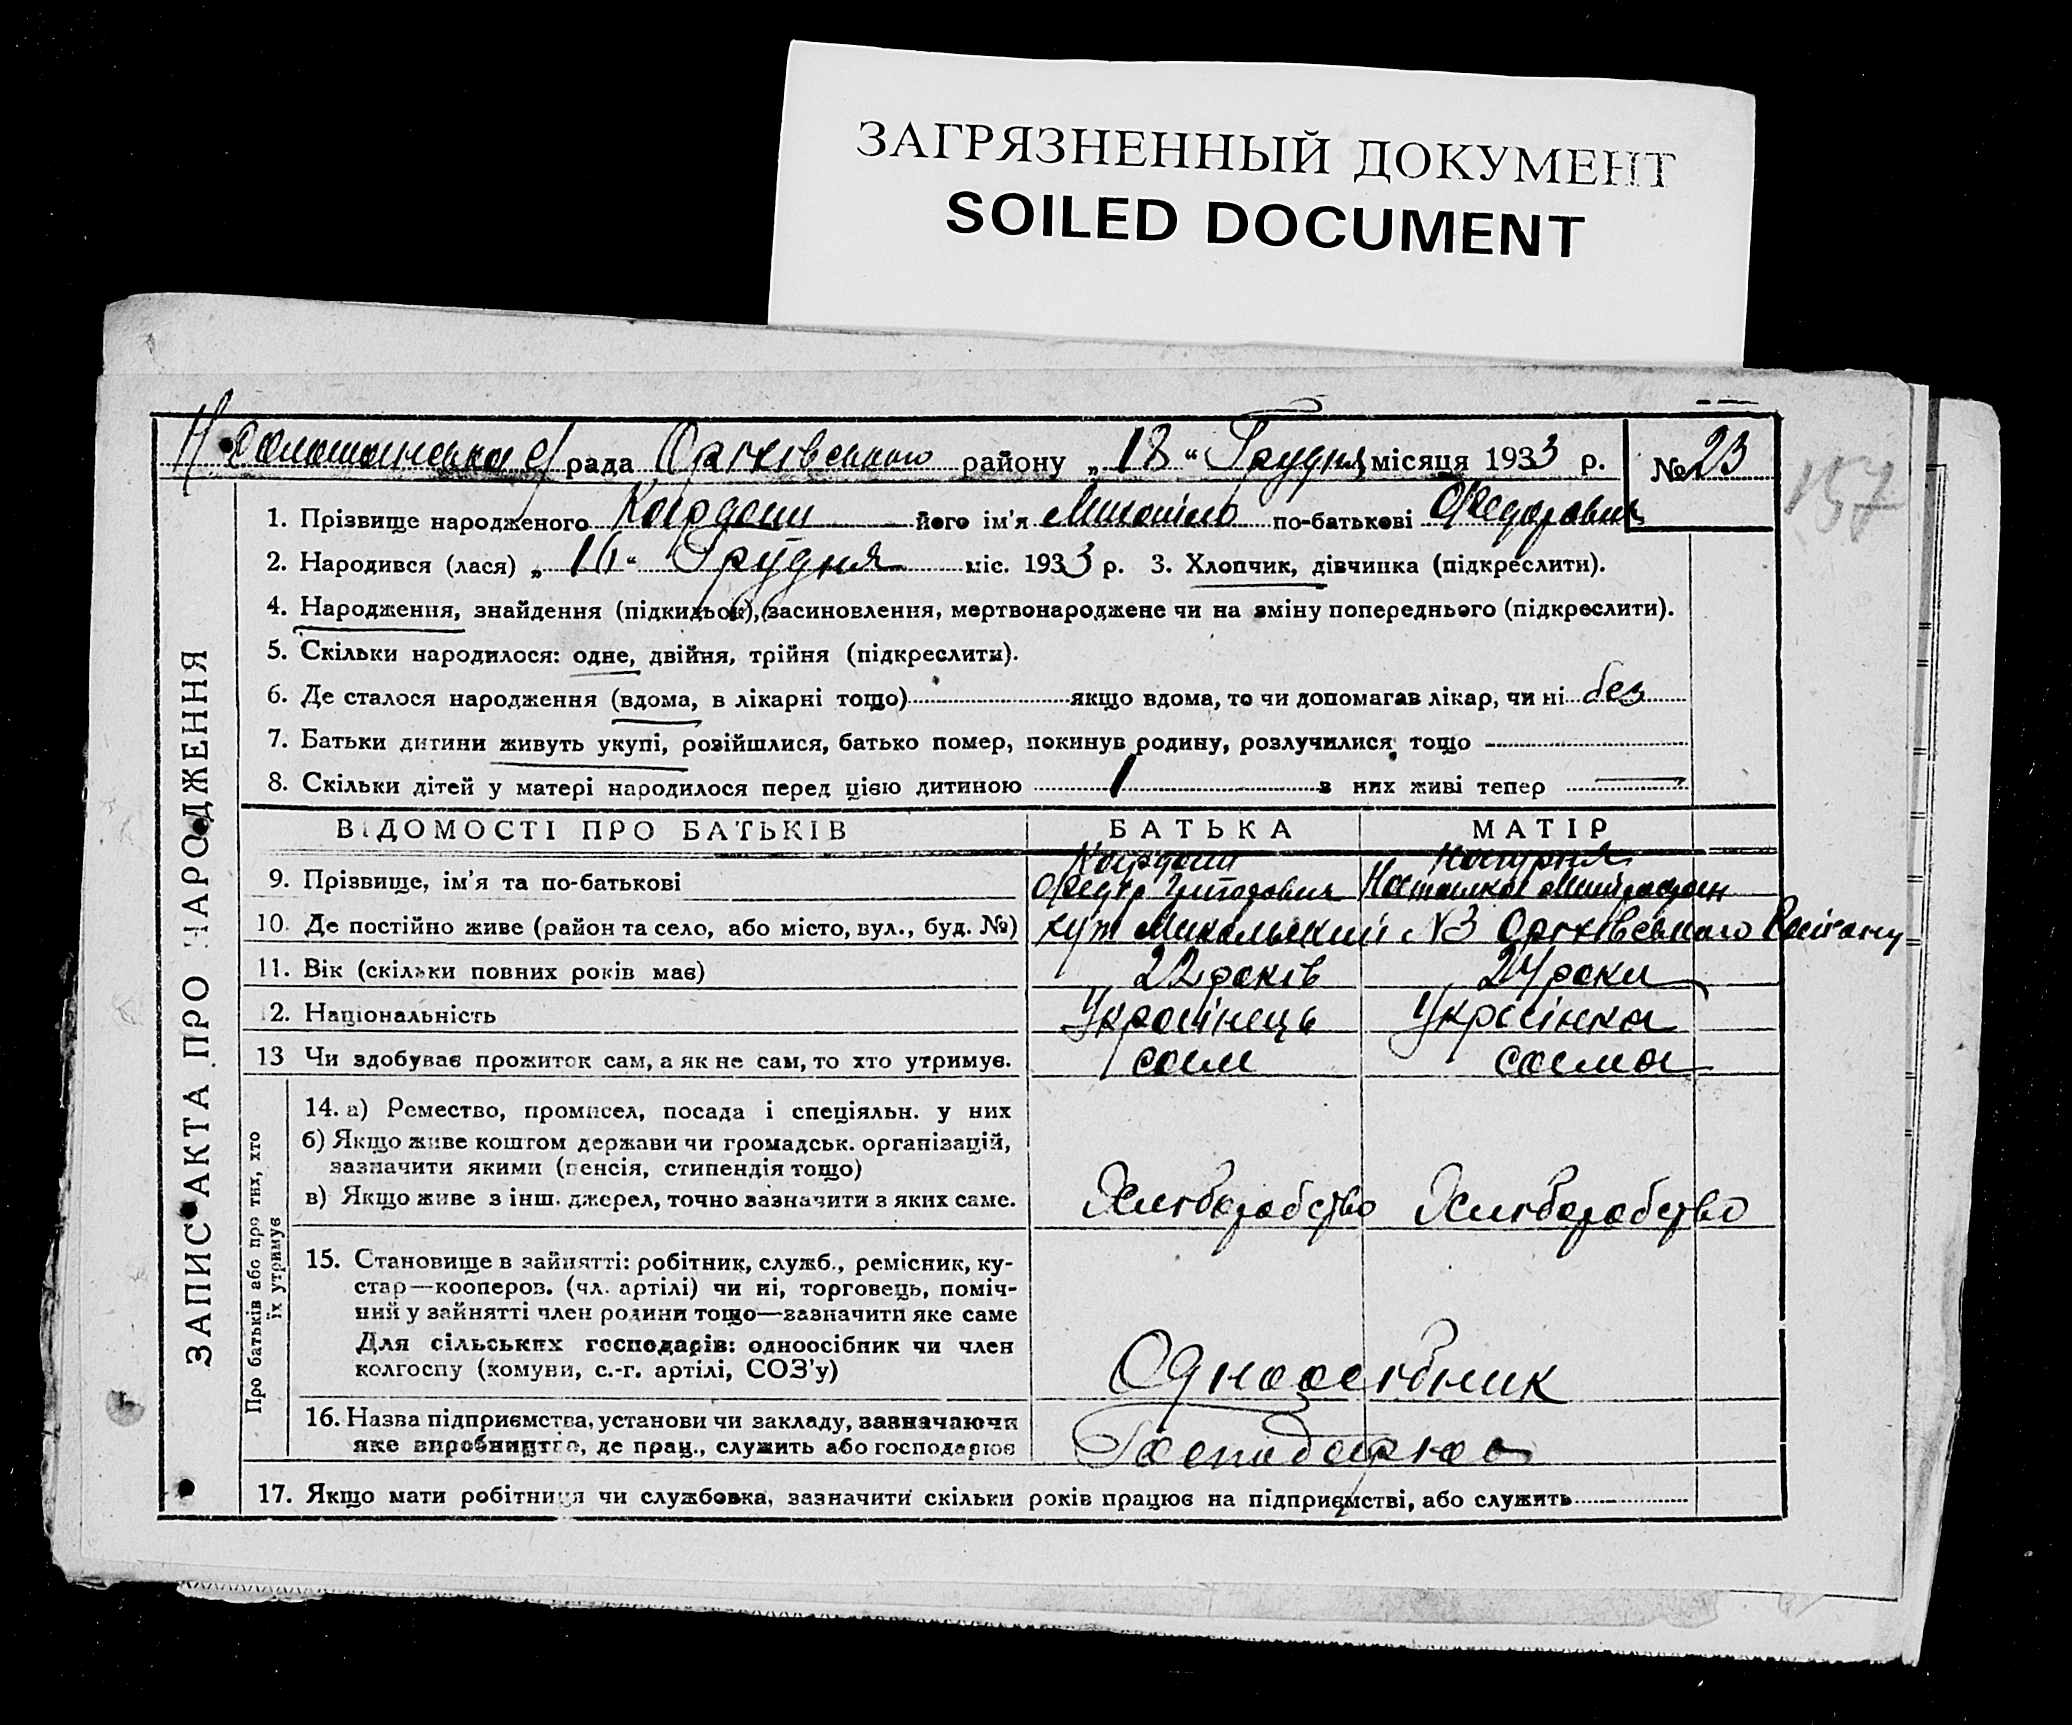 ЗАГРЯЗНЕННЫЙ ДОКУМЕНТ
SOILED DOCUMENT
рада Оріхівського району „18“ Грудня місяця 1933 р. № 23
157
1. Прізвище народженого Кардаш його ім'я по-батькові Федорович
2. Народився (лася) „16“ Грудня міс. 1933 р. 3. Хлопчик, дівчинка (підкреслити).
4. Народження, знайдення (підкидьок), засиновлення, мертвонароджене чи на зміну попереднього (підкреслити).
5. Скільки народилося: одне, двійня, трійня (підкреслити).
6. Де сталося народження (вдома, в лікарні тощо) якщо вдома, то чи допомагав лікар, чи ні без
7. Батьки дитини живуть укупі, розійшлися, батько помер, покинув родину, розлучилися тощо
8. Скільки дітей у матері народилося перед цією дитиною 1 з них живі тепер
ВІДОМОСТІ ПРО БАТЬКІВ БАТЬКА МАТІР
Кардаш
9. Прізвище, ім'я та по-батькові Федір Григорович
10. Де постійно живе (район та село, або місто, вул., буд. №) кут Микольский №3 Оріхівського Району
11. Вік (скільки повних років має) 22 років 24 роки
12. Національність Українець Українка
13 Чи здобуває прожиток сам, а як не сам, то хто утримує. сам сама
14. а) Ремество, промисел, посада і спеціяльн. у них
б) Якщо живе коштом держави чи громадськ. організацій,
зазначити якими (пенсія, стипендія тощо)
в) Якщо живе з інш. джерел, точно зазначити з яких саме. Хліборобство Хліборобство
15. Становище в зайнятті: робітник, служб., ремісник, ку-
стар—кооперов. (чл. артілі) чи ні, торговець, поміч-
ний у зайнятті член родини тощо—зазначити яке саме
Для сільських господарів: одноосібник чи член
колгоспу (комуни, с.-г. артілі, СОЗ'у) Одноосібник
16. Назва підприємства, установи чи закладу, зазначаючи
яке виробництво, де прац., служить або господарює Господарює
17. Якщо мати робітниця чи службовка, зазначити скільки років працює на підприємстві, або служить
ЗАПИС АКТА ПРО НАРОДЖЕННЯ
Про батьків або про тих, хто
їх утримує